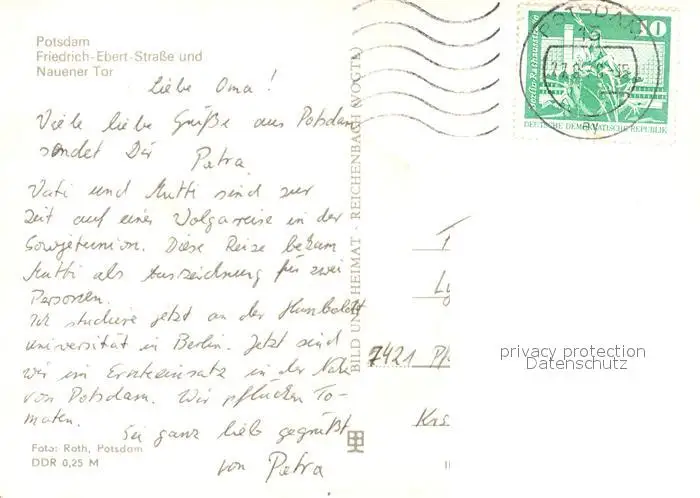 Potsdam
Friedrich-Ebert-Straße und
Nauener Tor
Liebe Oma!
Viele liebe Grüße aus Potsdam
sendet Dir
Petra.
Vati und Mutti sind zur
Zeit auf einer Volgareise in der
Sowjetunion. Diese Reise bekam
Mutti als Auszeichnung für zwei
Personen.
Ich studiere jetzt an der Humboldt
universität in Berlin. Jetzt sind
wir im Ernteeinsatz in der Nähe
von Potsdam. Wir pflücken To-
maten.
Sei ganz lieb gegrüßt
von Petra
Foto: Roth, Potsdam
DDR 0,25 M
BILD UND HEIMAT · REICHENBACH (VOGTL)
POTSDAM
15
10
Berlin-Rathausstraße
DEUTSCHE DEMOKRATISCHE REPUBLIK
7421
Krs
privacy protection
Datenschutz